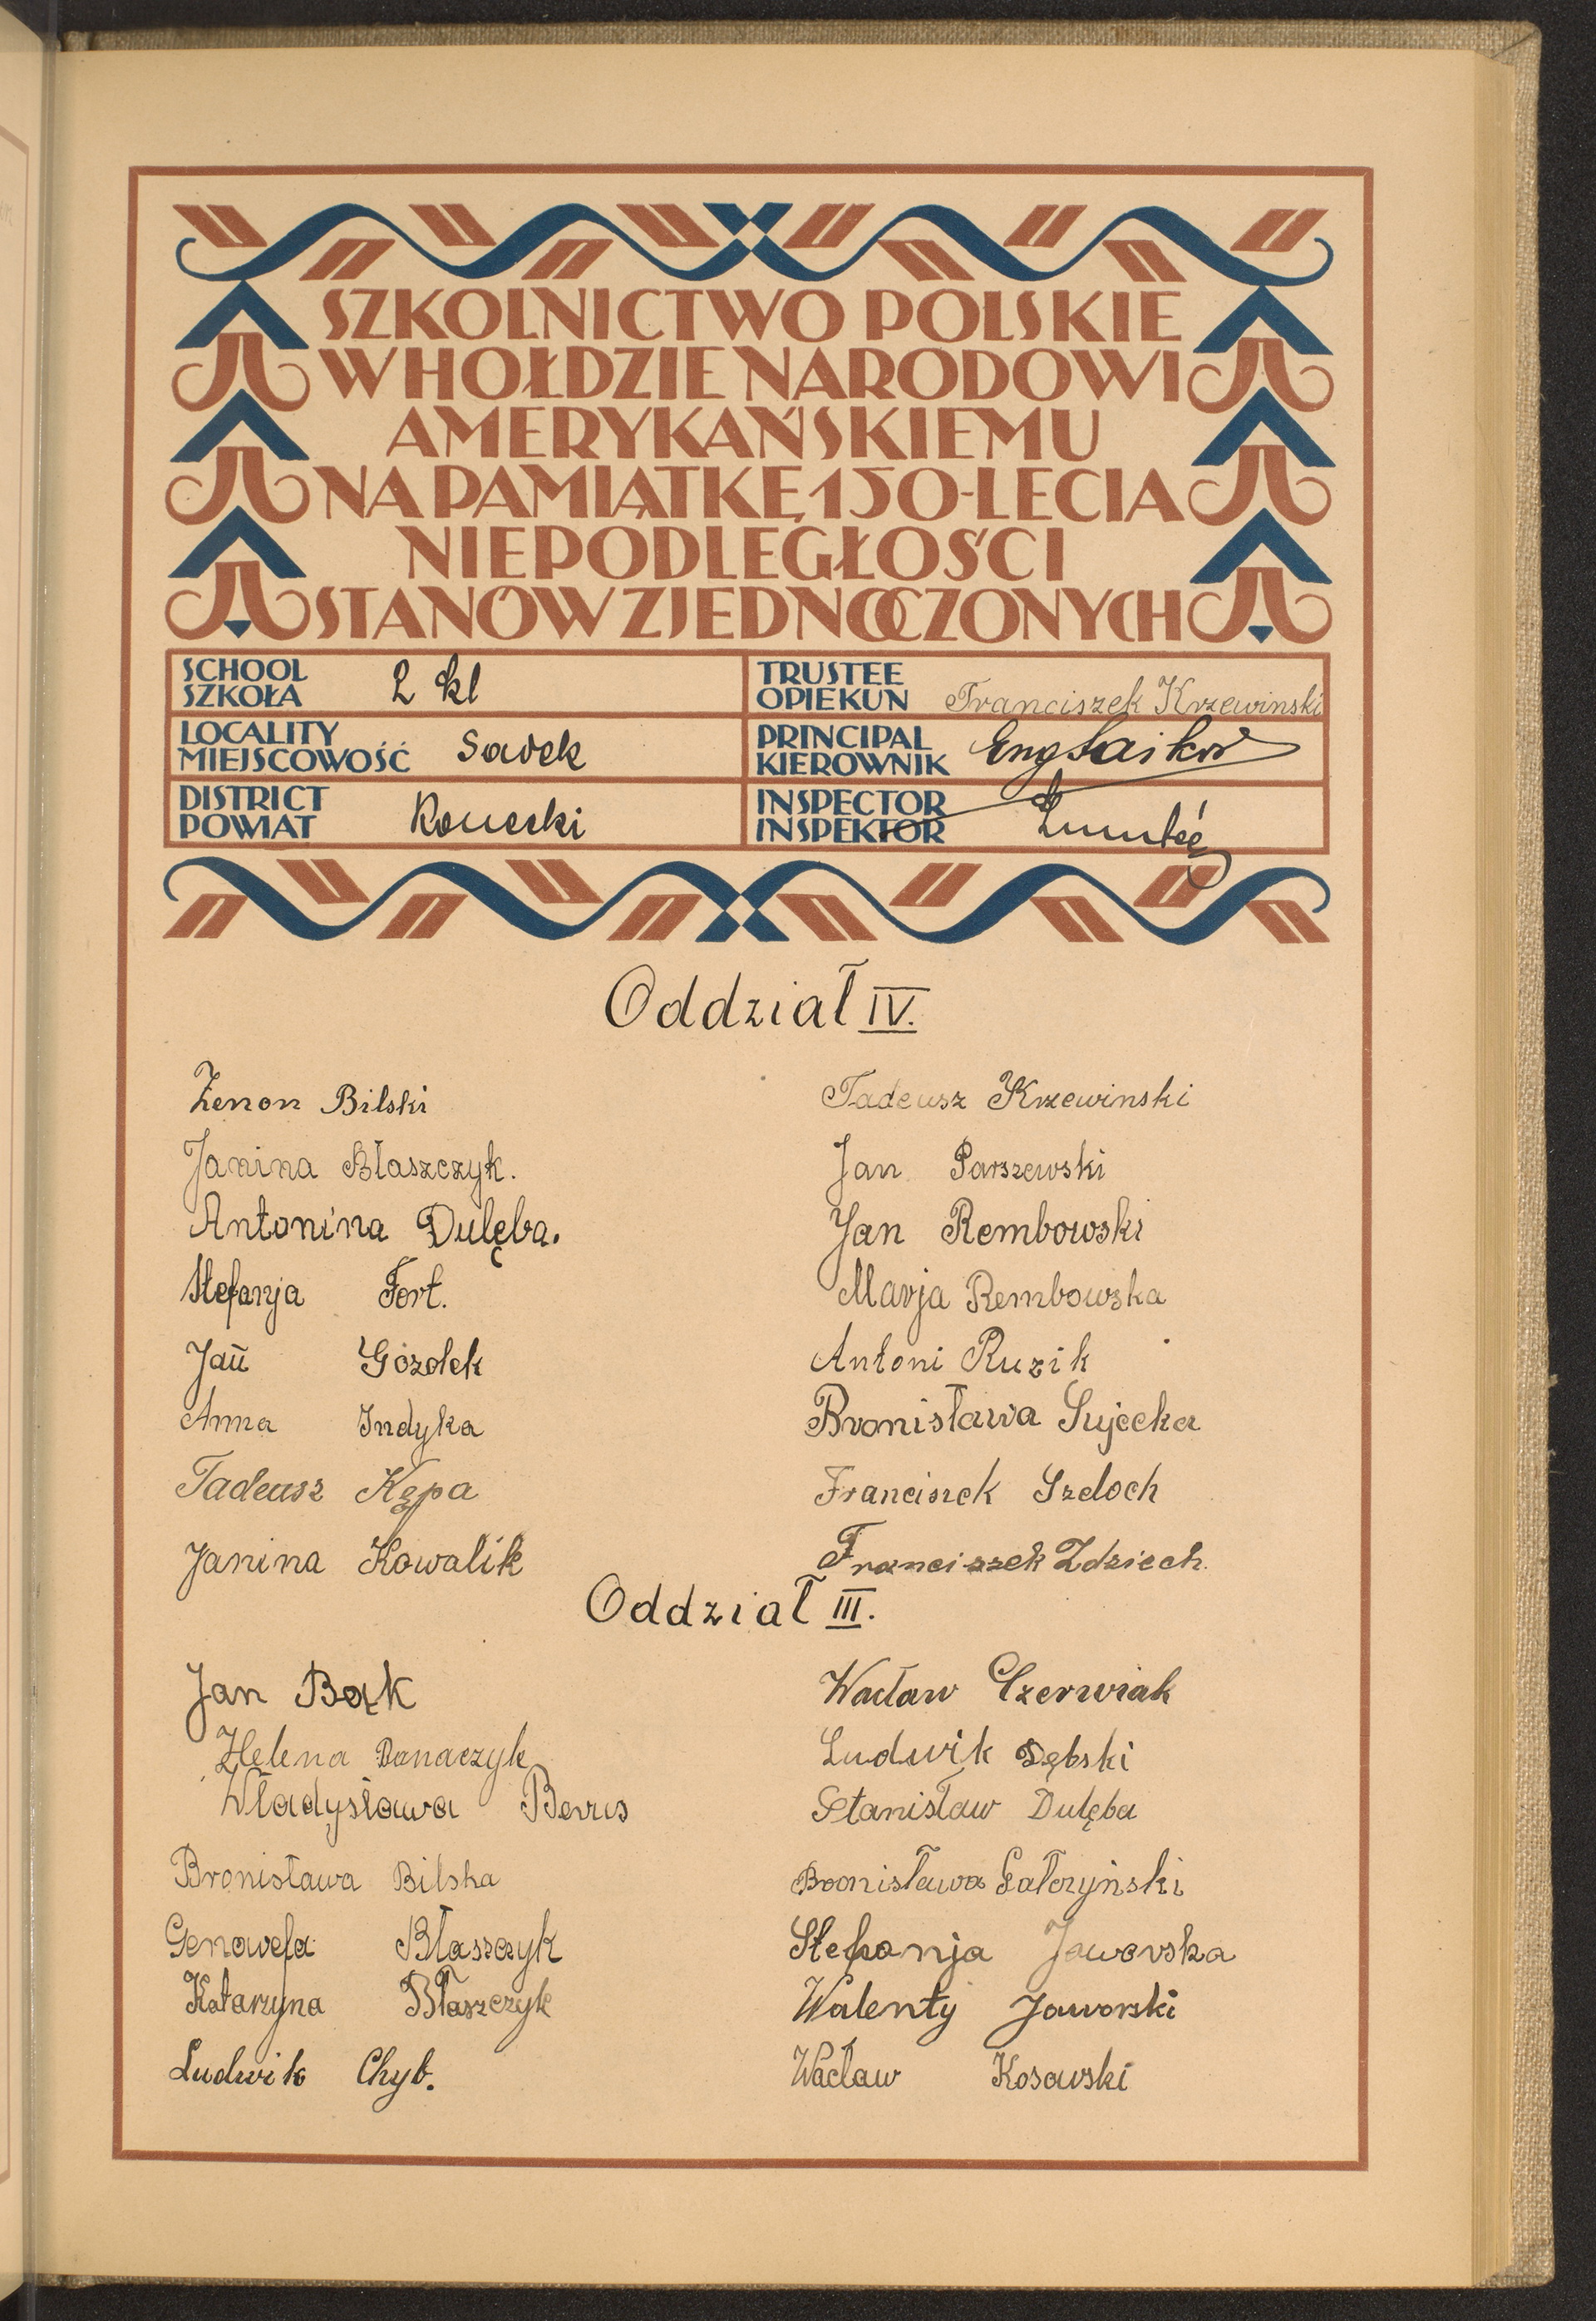 SZKOLNICTWO POLSKIE
W HOŁDZIE NARODOWI
AMERYKAŃSKIEMU
NA PAMIĄTKĘ 150-LECIA
NIEPODLEGŁOŚCI
STANÓW ZJEDNOCZONYCH
SCHOOL
SZKOŁA 2 kl
TRUSTEE
OPIEKUN Franciszek Krzewinski
LOCALITY
MIEJSCOWOŚĆ Savek
PRINCIPAL
KIEROWNIK
DISTRICT
POWIAT Konecki
INSPECTOR
INSPEKTOR
Oddział IV.
Zenon Bilski
Janina Błaszczyk.
Antonina Dulęba.
Stefanja Fort.
Jan Gózolek
Anna Indyka
Tadeusz Kępa
Janina Kowalik
Tadeusz Krzewinski
Jan Parszewski
Jan Rembowski
Marja Rembowska
Antoni Ruzik
Bronisława Sujecka
Franciszek Szeloch
Franciszek Zdziech.
Oddział III.
Jan Bąk
Helena Banaczyk
Władysława Berus
Bronisława Bilska
Genowefa Błaszczyk
Katarzyna Błaszczyk
Ludwik Chyb.
Wacław Czerwiak
Ludwik Dębski
Stanisław Dulęba
Bronisława Gałczyński
Stefanja Jaworska
Walenty Jaworski
Wacław Kosowski